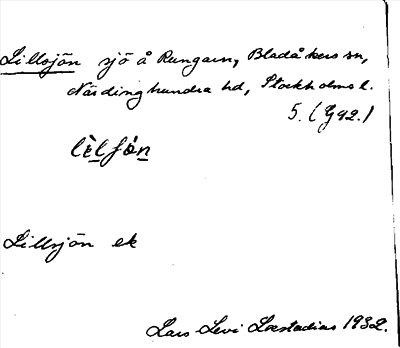 Lillsjön sjö å Rungarn, Bladåkers sn,
Närdinghundra hd, Stockholms l.
5. (G 92.)
lèlʃón
Lillsjön ek
Lars Levi Læstadius 1932.